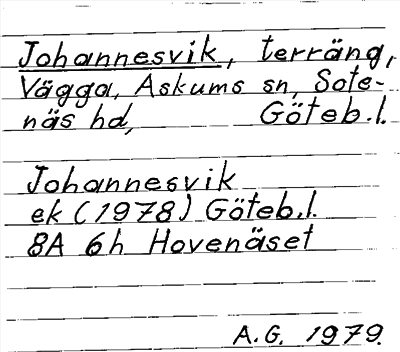 Johannesvik, terräng,
Vägga, Askums sn, Sote-
näs hd, Göteb.l.
Johannesvik
ek (1978) Göteb.l.
8A 6h Hovenäset
A.G. 1979.